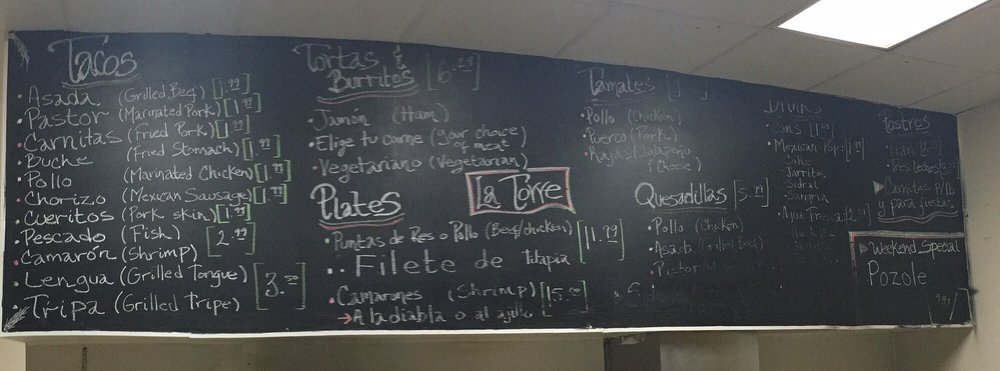 Tacos
• Asada (Grilled Beef) [1.99]
• Pastor (Marinated Pork) [1.99]
• Carnitas (Fried Pork) [1.99]
• Buche (Fried Stomach) [1.99]
• Pollo (Marinated Chicken) [1.99]
• Chorizo (Mexican Sausage) [1.99]
• Cueritos (Pork skin) [1.99]
• Pescado (Fish) [2.99]
• Camaron (Shrimp)
• Lengua (Grilled Tongue) [3.00]
• Tripa (Grilled Tripe)
Tortas &
Burritos
• Jamón (Ham)
• Elige tu carne (your choice
of meat)
• Vegetariano (Vegetarian)
La Torre
Plates
• Puntas de Res o Pollo (Beef/chicken) [11.99]
•• Filete de tilapia
• Camarones (Shrimp) [15.00]
→ A la diabla o al ajillo
Tamales
• Pollo (Chicken)
• Puerco (Pork)
• Rajas (Jalapeño
& Cheese)
Quesadillas [5.99]
• Pollo (Chicken)
• Asada (Grilled Beef)
• Pastor
• Mexican Pop
Coke
Jarritos
Sidral
Sangria
• Agua Fresca
Postres
• Flan
• Tres leches
▸ Carnitas p/lb
y para fiestas
▸ Weekend Special
Pozole